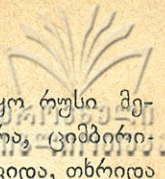 ყო რუსი მე-
რა, ციმბირი-
ვიდა, თხრიდა